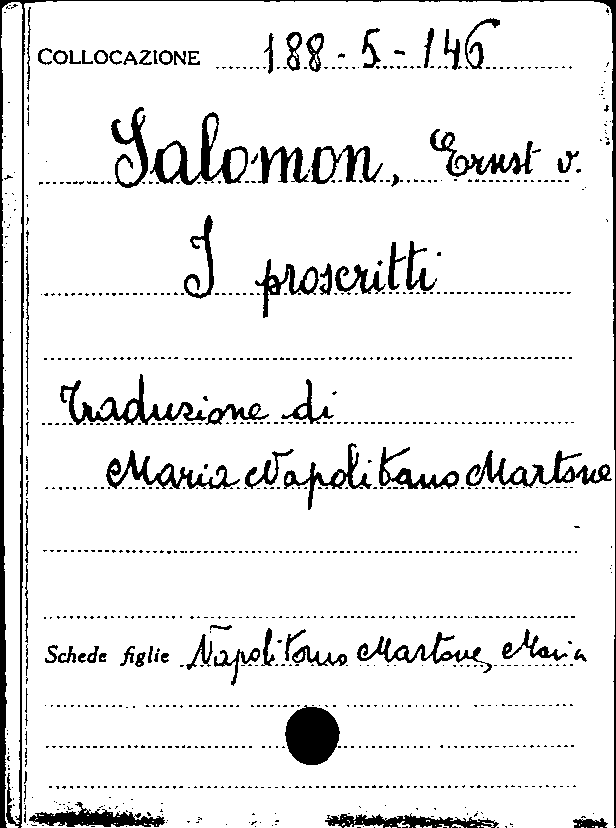 COLLOCAZIONE 188-5-146
Salomon, Ernst v.
I proscritti
Traduzione di
Maria Napolitano Martone
Schede figlie Napolitano Martone, Maria